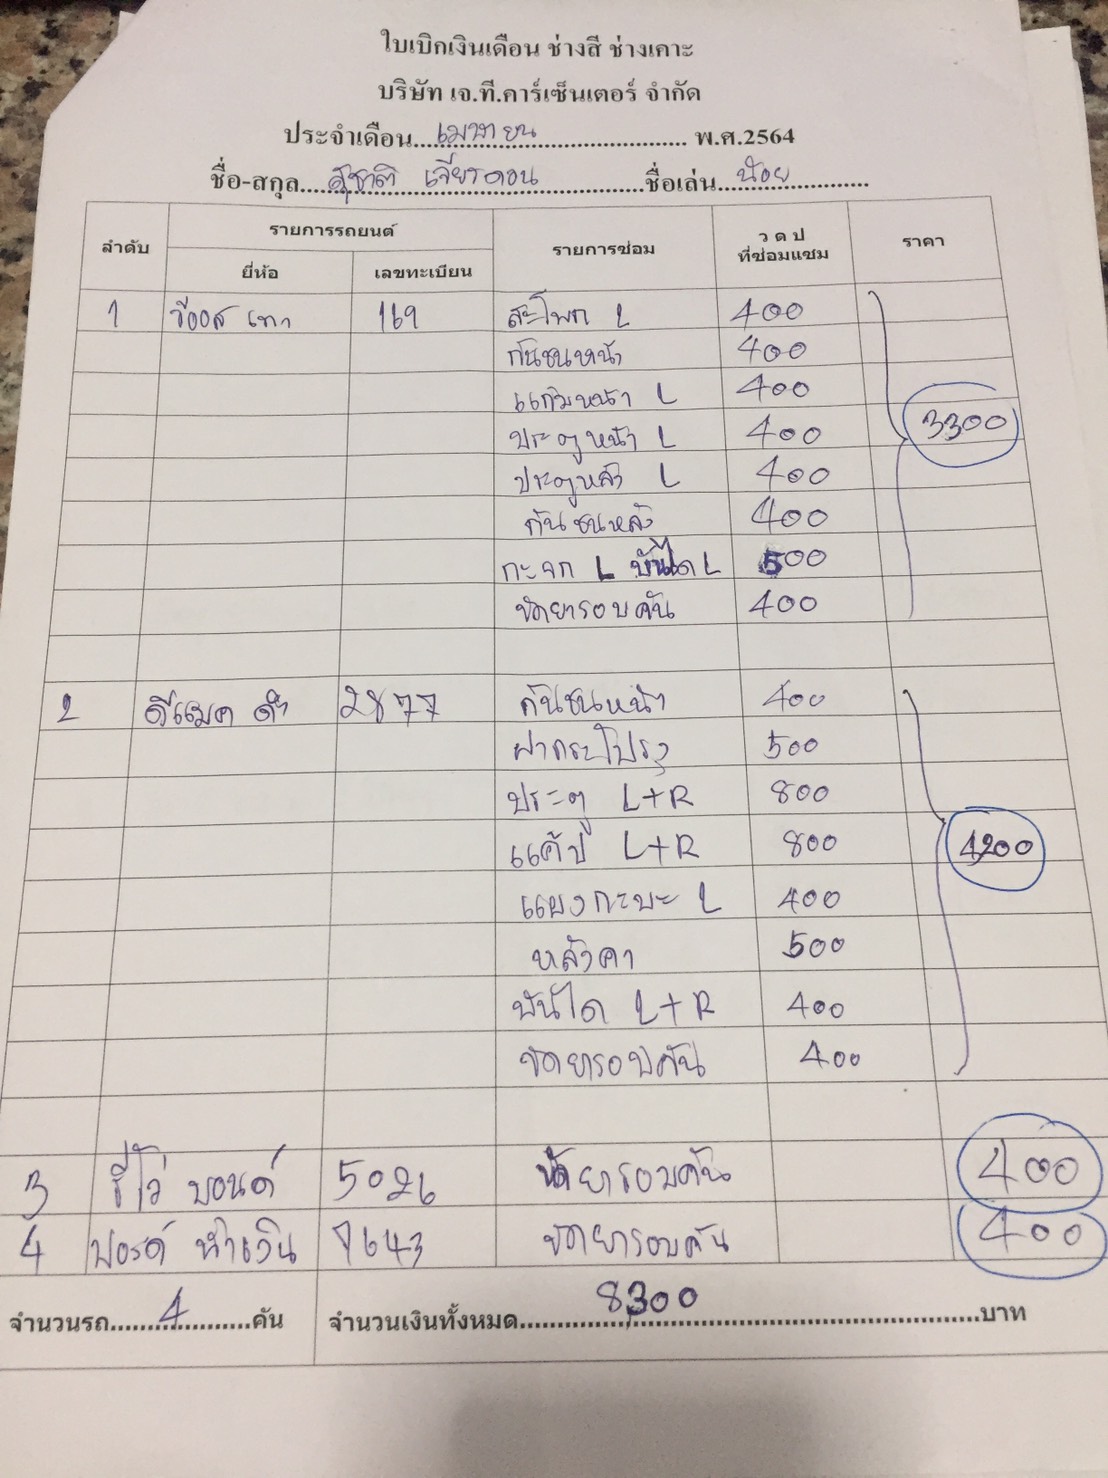 ใบเบิกเงินเดือน ช่างสี ช่างเคาะ
บริษัท เจ.ที.คาร์เซ็นเตอร์ จำกัด
ประจำเดือน...เมษายน... พ.ศ.2564
ชื่อ-สกุล...สุชาติ เจียรดอน...ชื่อเล่น...น้อย...
ลำดับ รายการรถยนต์ รายการซ่อม ว ด ป ที่ซ่อมแซม ราคา
ยี่ห้อ เลขทะเบียน
1 วีออส เทา 169 สะโพก L 400
กันชนหน้า 400
แก้มหน้า L 400
ประตูหน้า L 400 3300
ประตูหลัง L 400
กันชนหลัง 400
กะจก L บันได L 500
ขัดยารอบคัน 400
2 ดีแมค ดำ 2877 กันชนหน้า 400
ฝากระโปรง 500
ประตู L+R 800
แค๊ป L+R 800 4200
แผงกะบะ L 400
หลังคา 500
บันได L+R 400
ขัดยารอบคัน 400
3 รีโว่ บอนด์ 5026 ขัดยารอบคัน 400
4 ฟอร์ด น้ำเงิน 7643 ขัดยารอบคัน 400
จำนวนรถ...4...คัน จำนวนเงินทั้งหมด...8,300...บาท